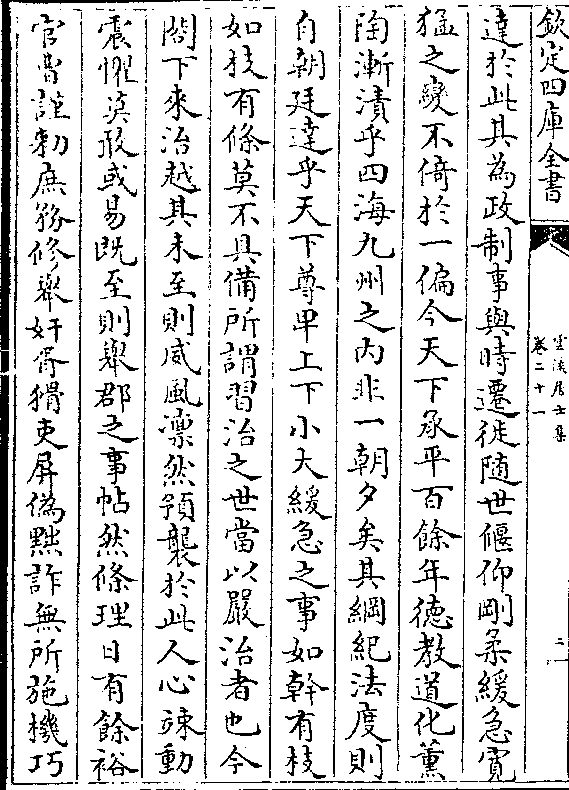 欽定四庫全書
雲溪居士集
卷二十一
二
達於此其為政制事與時遷徙隨世偃仰剛柔緩急寛
猛之變不倚於一偏今天下承平百餘年德教道化薫
陶漸漬乎四海九州之内非一朝夕矣其綱紀法度則
自朝廷達乎天下尊卑上下小大緩急之事如幹有枝
如枝有條莫不具備所謂習治之世當以嚴治者也今
閤下來治越其未至則威風凛然預襲於此人心竦動
震懼莫敢或易既至則舉郡之事帖然條理日有餘裕
官曺謹勅庶務修舉奸胥猾吏屏偽黜詐無所施機巧